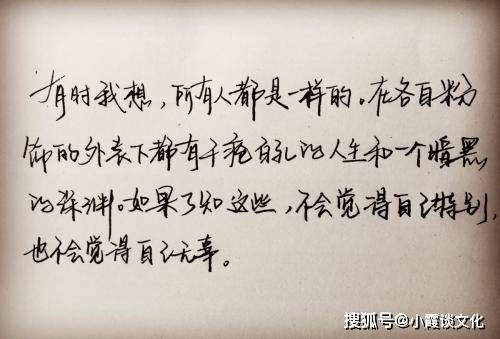 有时我想，所有人都是一样的。在各自粉
饰的外表下都有千疮百孔的人生和一个暗黑
的深渊。如果了知这些，不会觉得自己特别，
也不会觉得自己无辜。
搜狐号@小霞谈文化